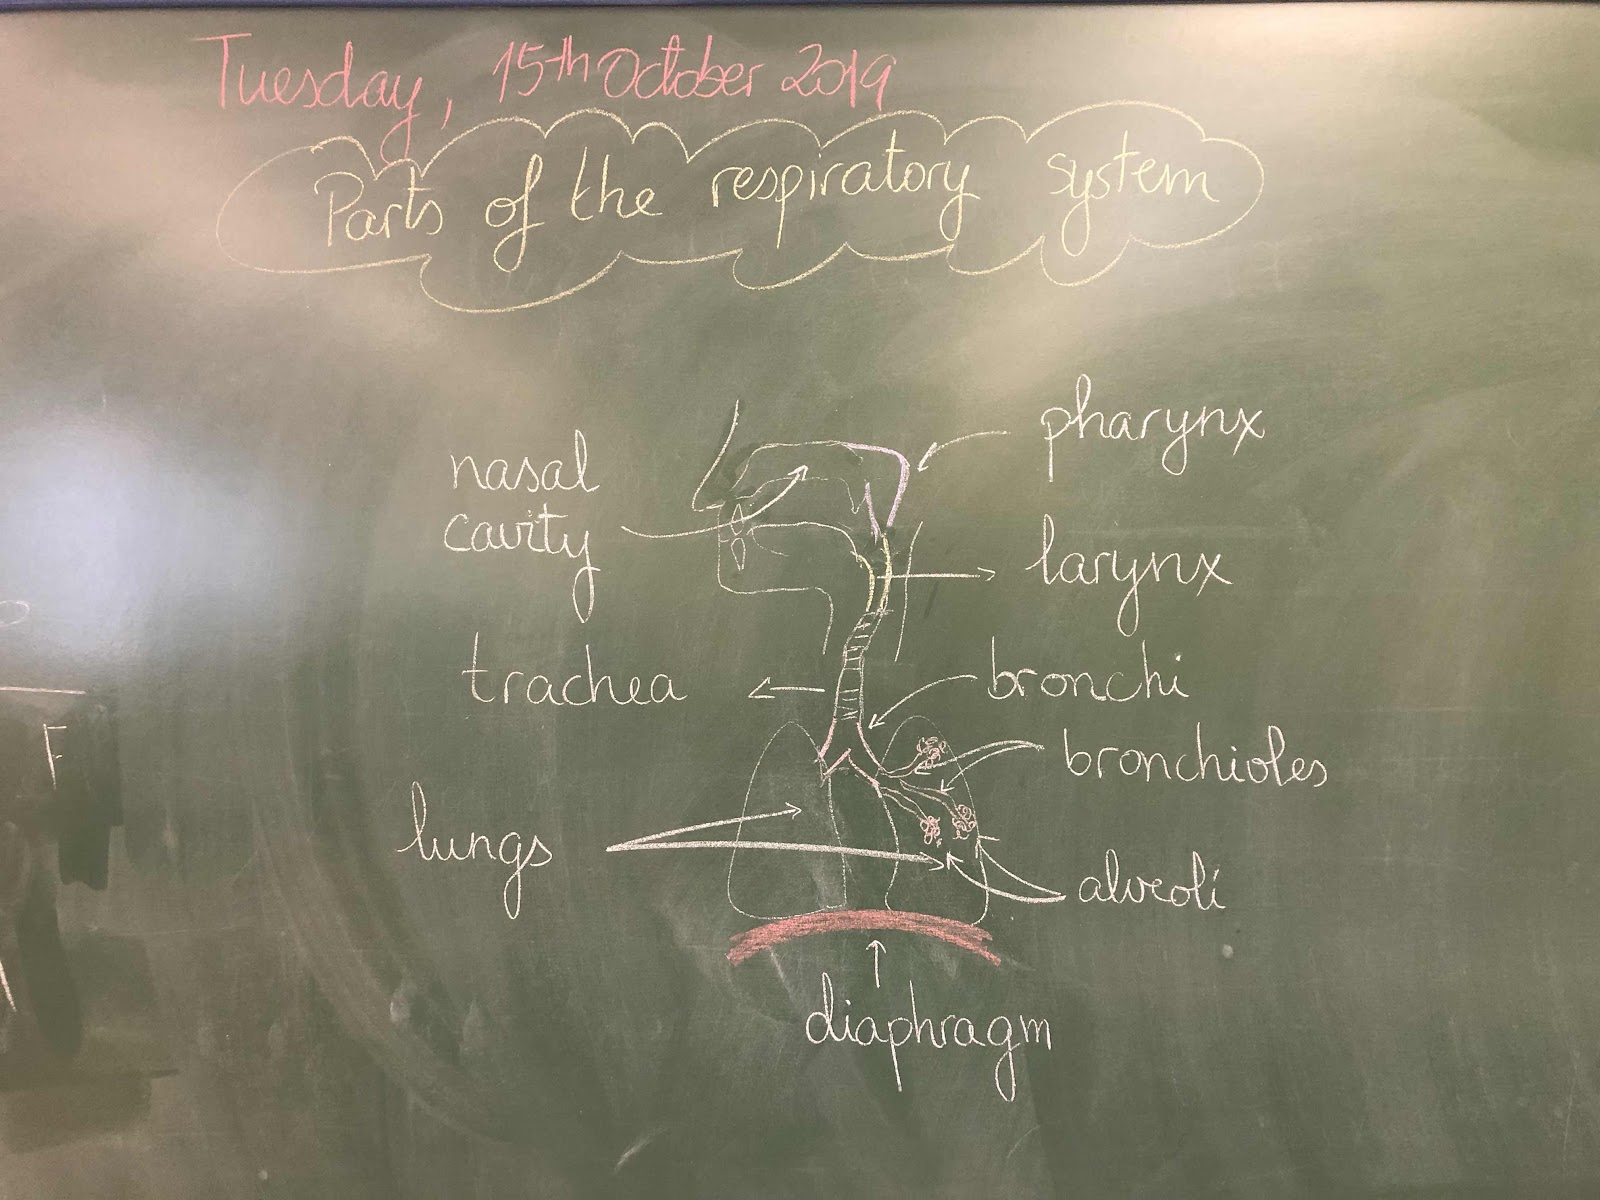 Tuesday, 15th October 2019
Parts of the respiratory system
nasal
cavity
pharynx
larynx
trachea
bronchi
bronchioles
lungs
alveoli
diaphragm
F